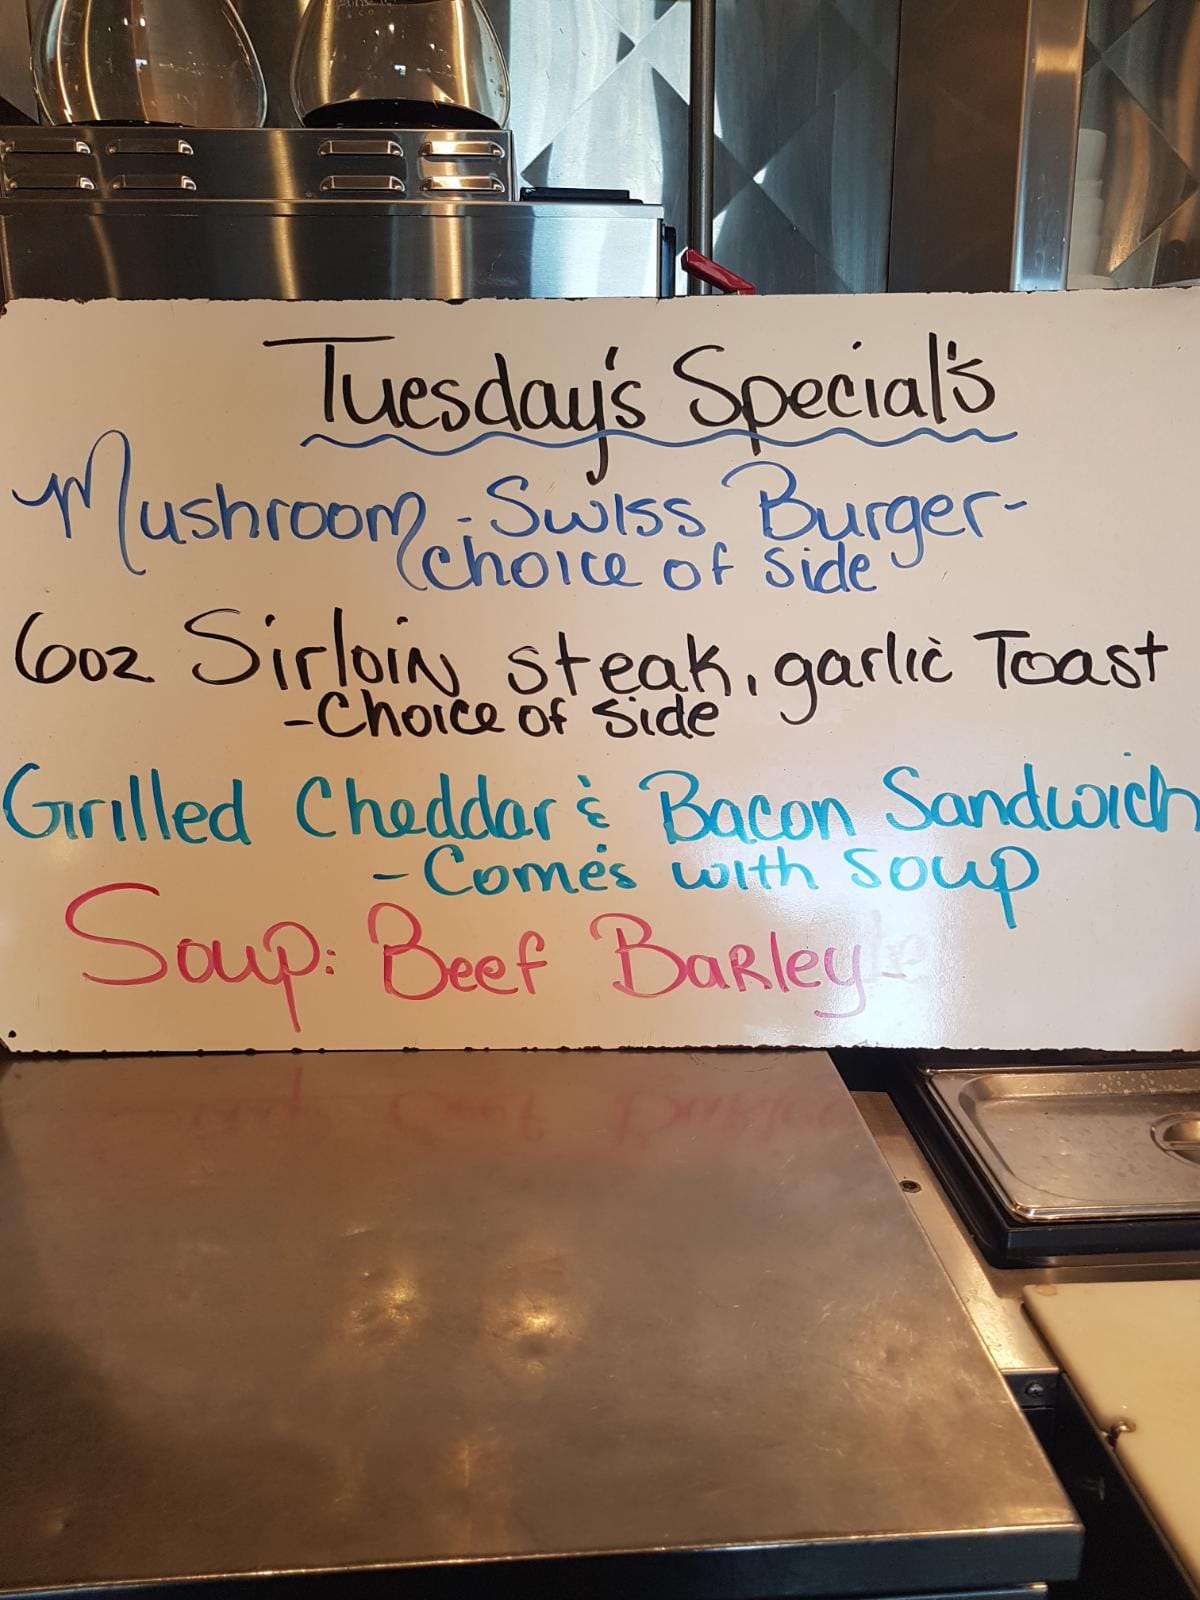 Tuesday's Special's
Mushroom - Swiss Burger -
choice of side
6oz Sirloin steak, garlic Toast
- Choice of side
Grilled Cheddar & Bacon Sandwich
- Come's with soup
Soup: Beef Barley -